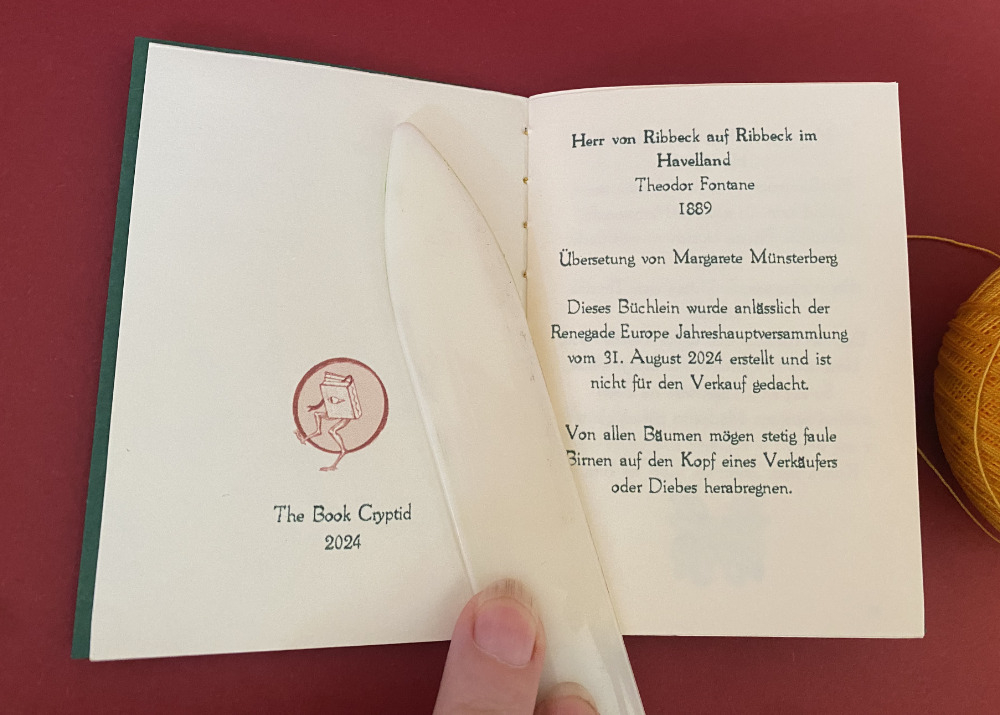 The Book Cryptid
2024
Herr von Ribbeck auf Ribbeck im
Havelland
Theodor Fontane
1889
Übersetung von Margarete Münsterberg
Dieses Büchlein wurde anlässlich der
Renegade Europe Jahreshauptversammlung
vom 31. August 2024 erstellt und ist
nicht für den Verkauf gedacht.
Von allen Bäumen mögen stetig faule
Birnen auf den Kopf eines Verkäufers
oder Diebes herabregnen.